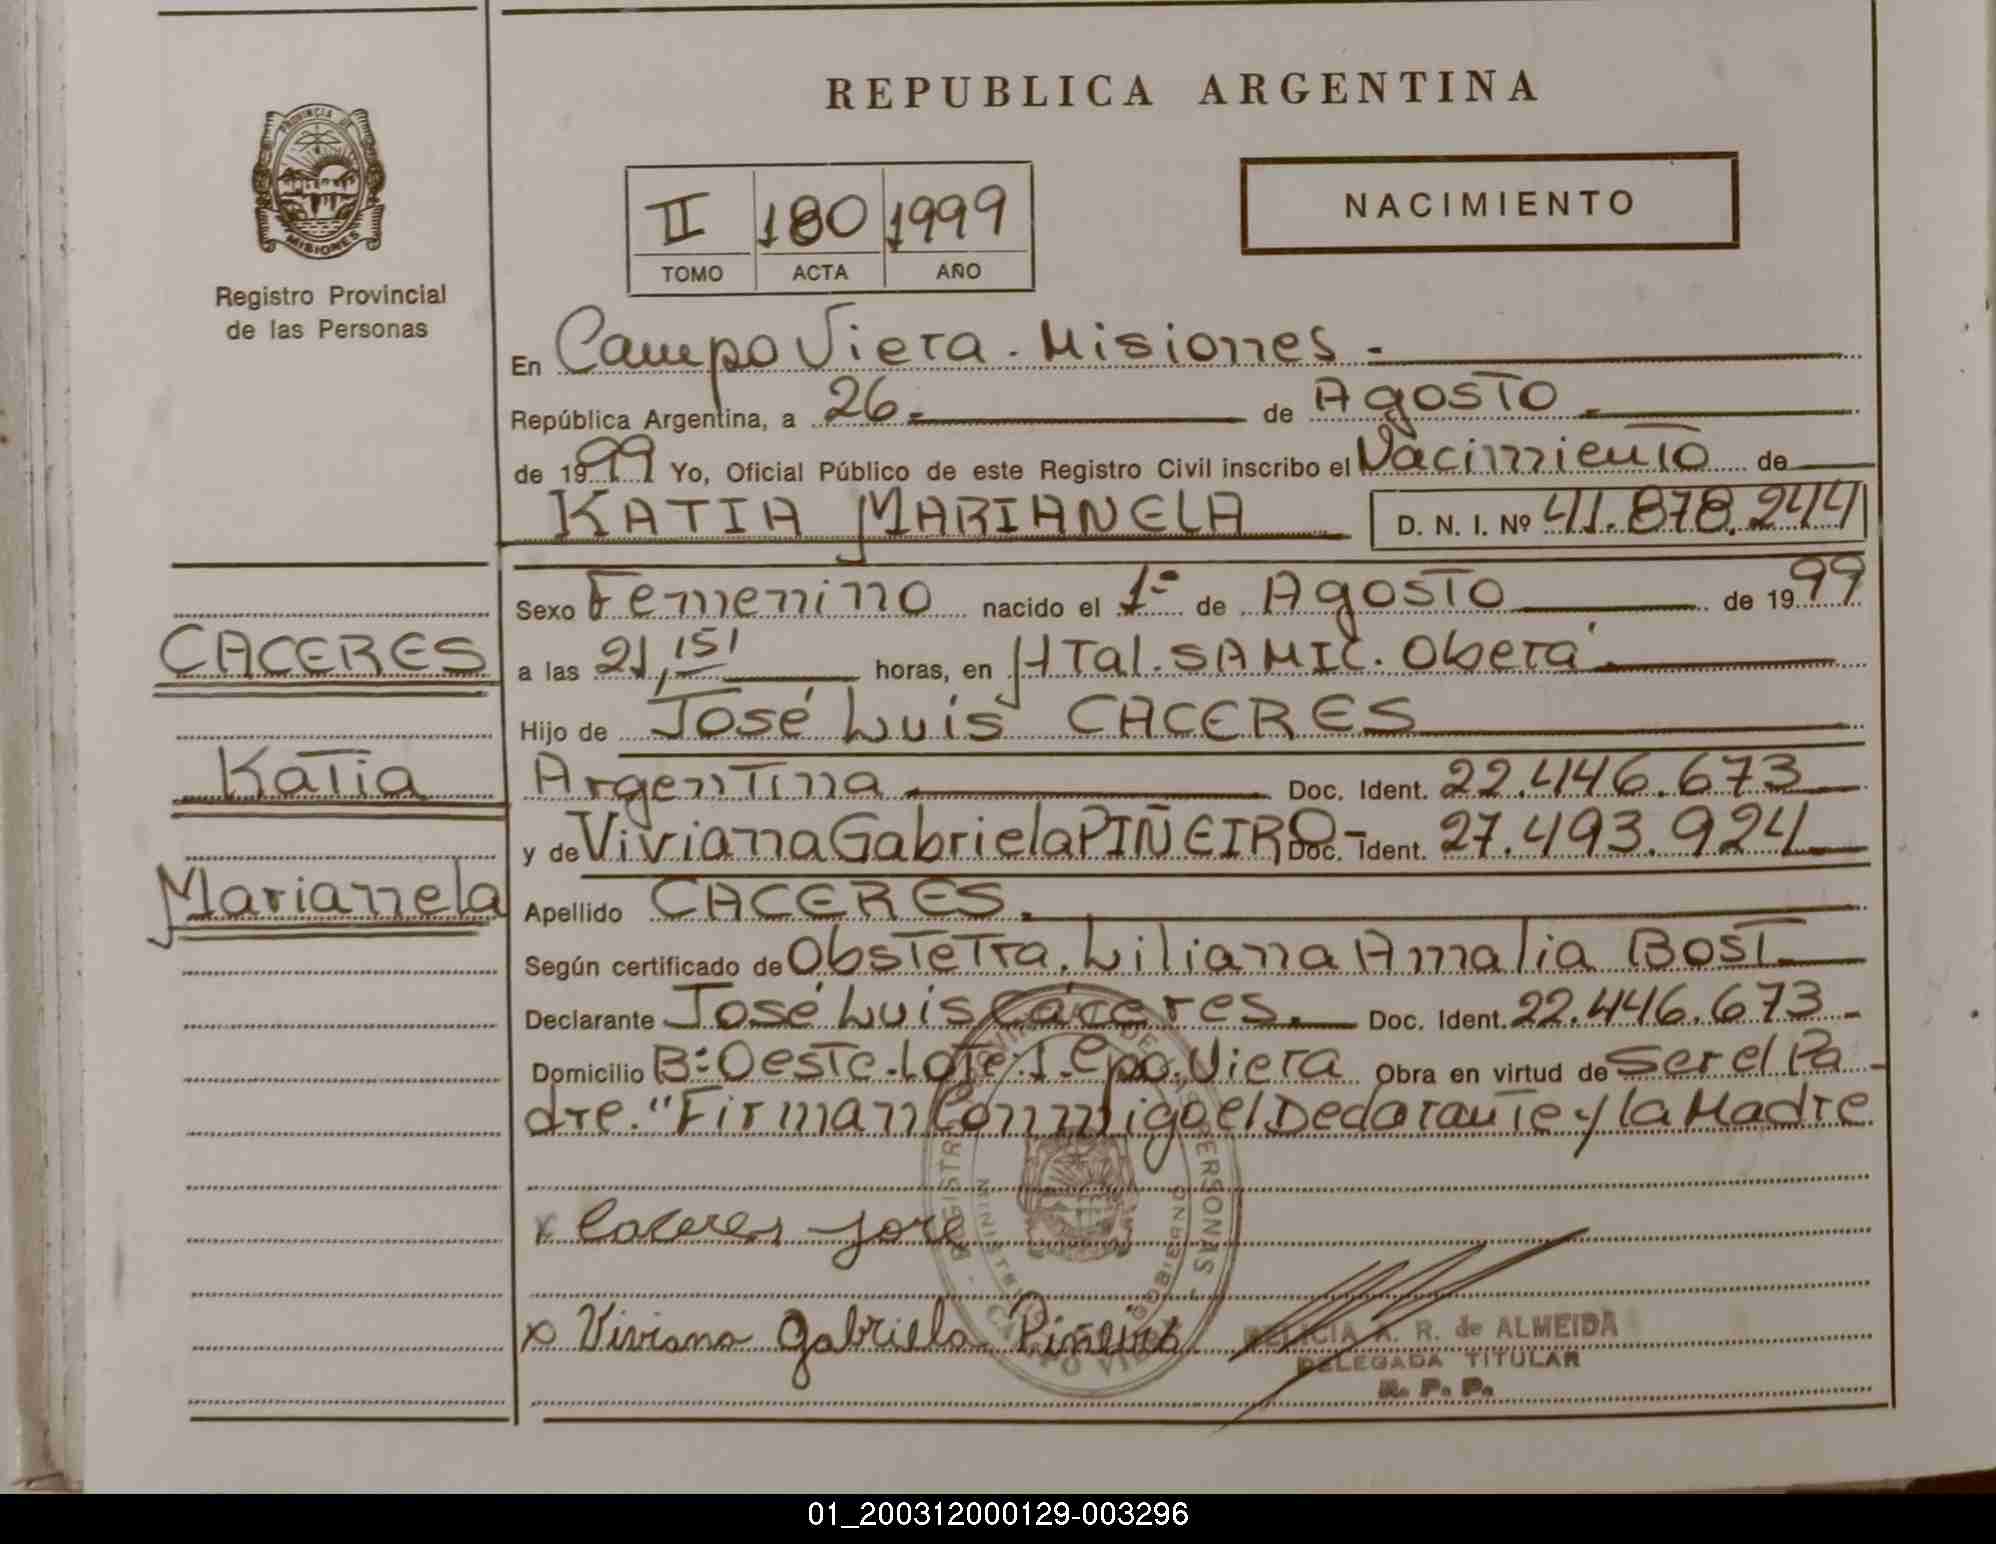 REPUBLICA ARGENTINA
PROVINCIA DE
MISIONES
Registro Provincial
de las Personas
II 180 1999
TOMO ACTA AÑO
NACIMIENTO
En Campo Viera. Misiones.-
República Argentina, a 26.- de Agosto.-
de 1999 Yo, Oficial Público de este Registro Civil inscribo el Nacimiento de
KATIA MARIANELA D. N. I. Nº 41.878.244
CACERES
Katia
Marianela
Sexo Femenino nacido el 1º de Agosto de 1999
a las 21,15' horas, en HTal. SAMIC. Oberá.
Hijo de José Luis CACERES
Argentina Doc. Ident. 22.446.673
y de Viviana Gabriela PIÑEIRO- Doc. Ident. 27.493.924
Apellido CACERES.
Según certificado de Obstetra. Liliana Amalia BOST.
Declarante José Luis Cáceres. Doc. Ident. 22.446.673-
Domicilio B:Oeste.Lote:1.Cpo.Viera Obra en virtud de Ser el Pa-
dre. "Firman Conmigo el Declarante y la Madre
x Caceres Jose
x Viviana Gabriela Piñeiro
PERSONAS
CAMPO VIERA
A. R. de ALMEIDA
DELEGADA TITULAR
R. P. P.
01_200312000129-003296